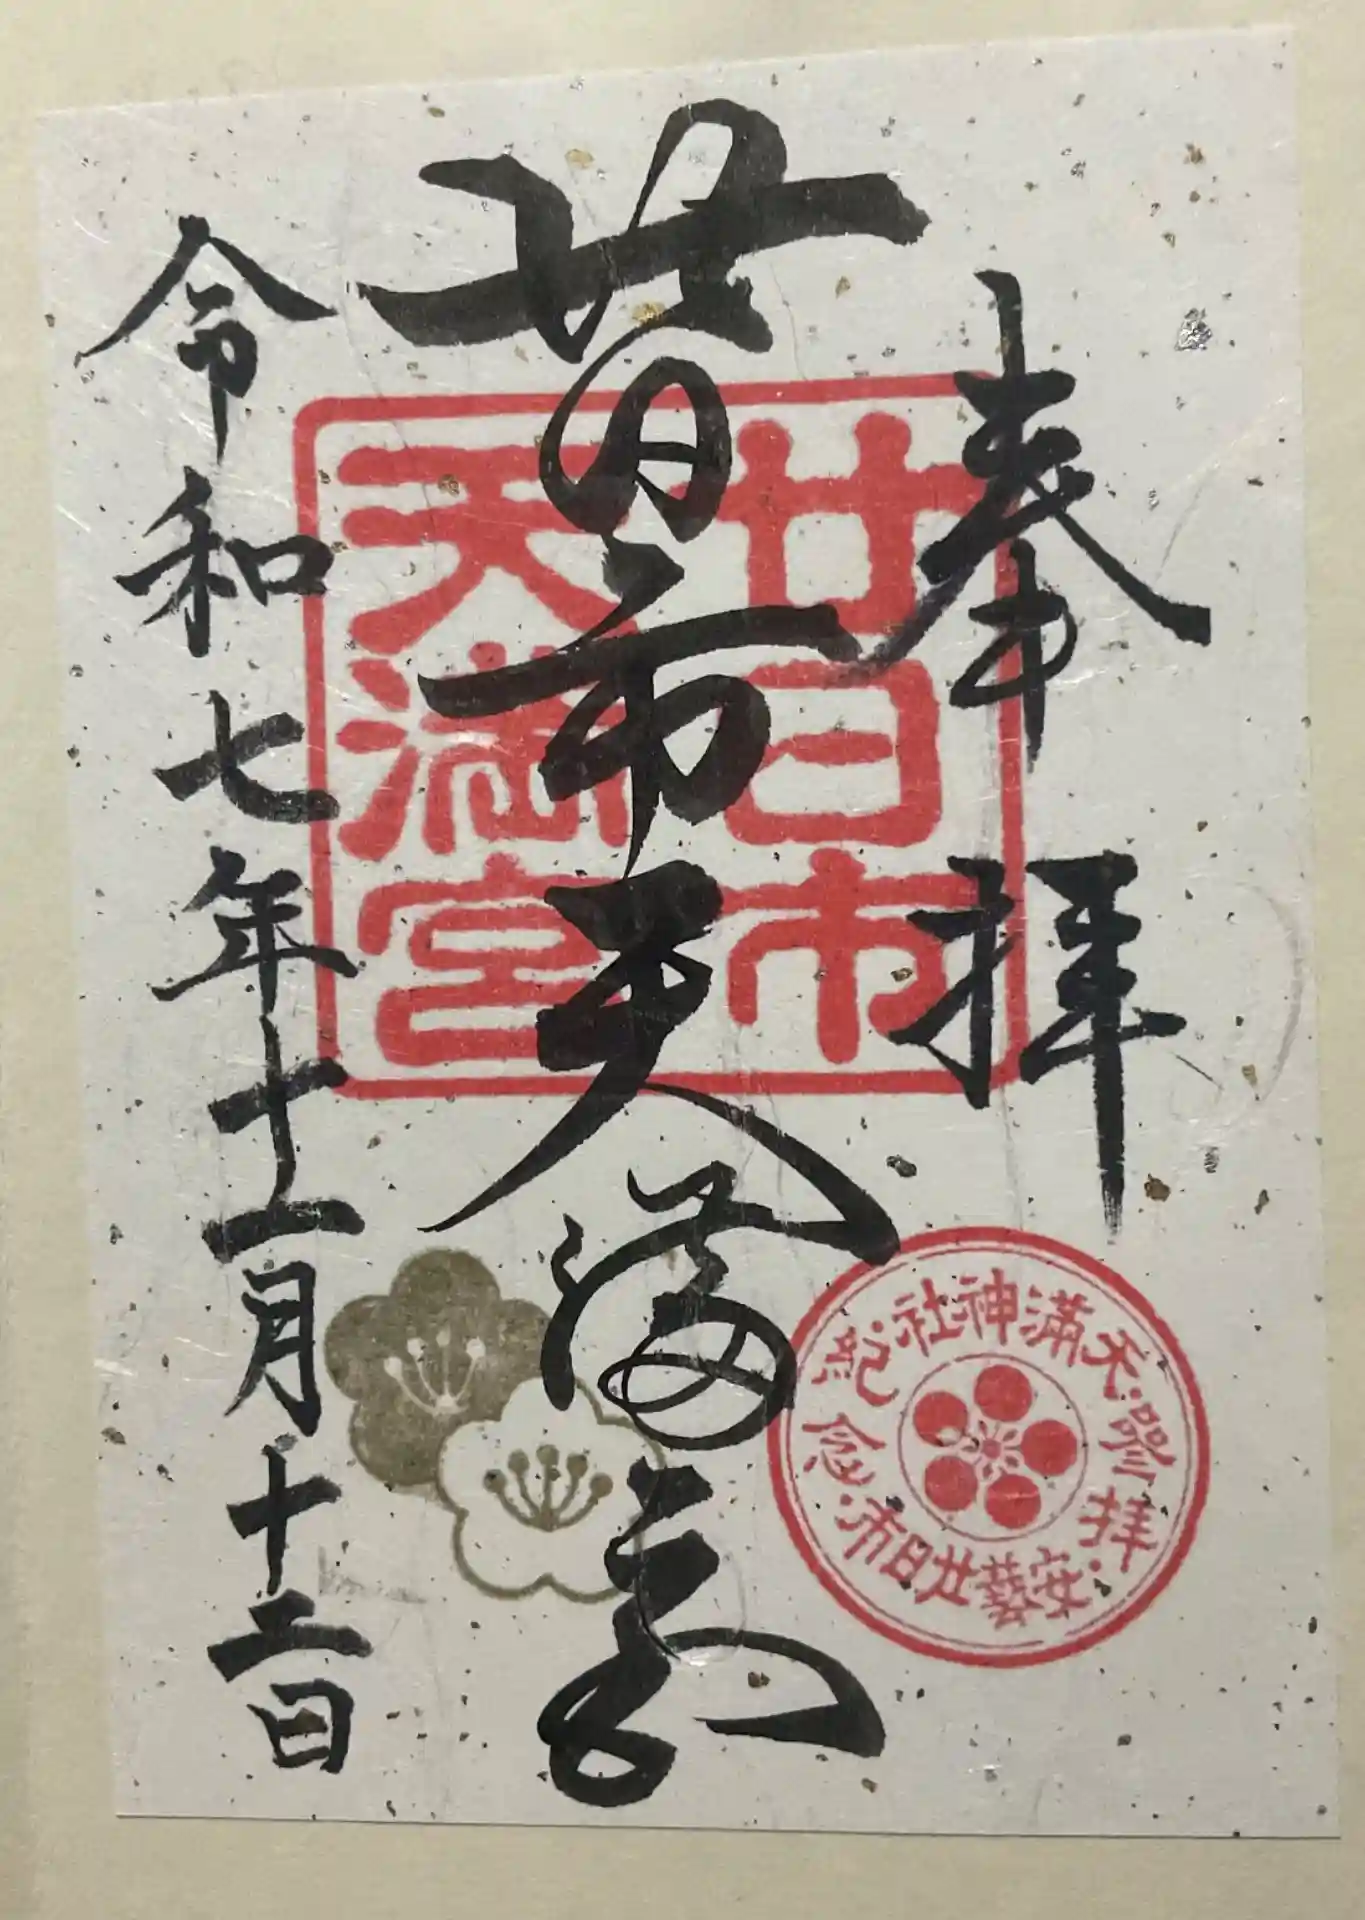 奉拝
廿日市天満宮
廿日市
天満宮
天満神社紀念・安藝廿日市・參拝
令和七年十一月十二日